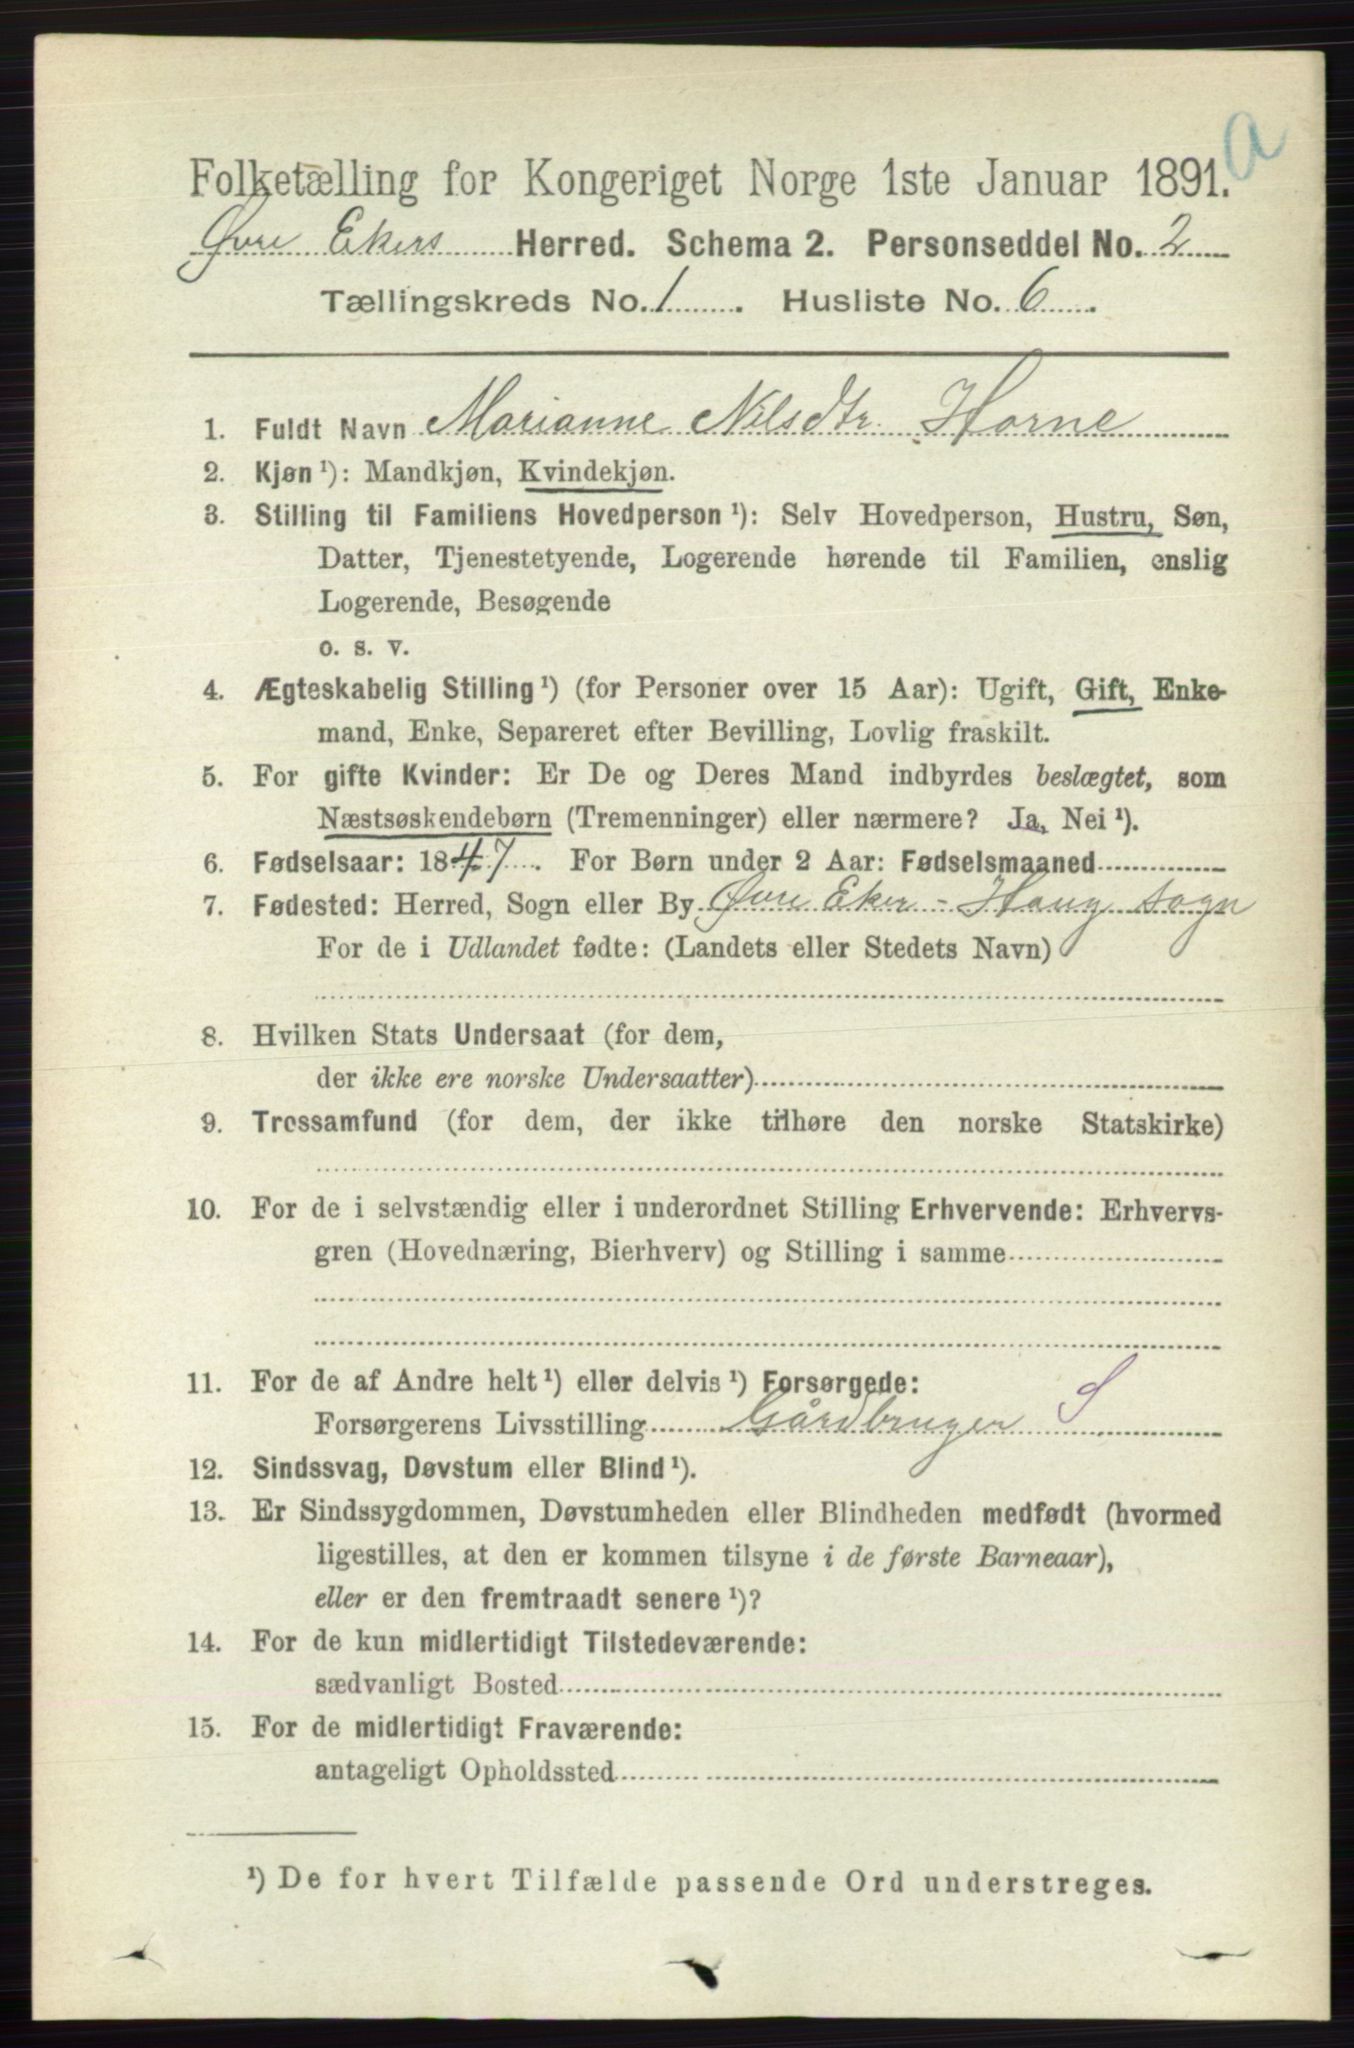 a
Folketælling for Kongeriget Norge 1ste Januar 1891.
Øvre Ekers Herred. Schema 2. Personseddel No. 2
Tællingskreds No. 1. Husliste No. 6.
1. Fuldt Navn Marianne Nilsdtr. Horne
2. Kjøn¹): Mandkjøn, Kvindekjøn.
3. Stilling til Familiens Hovedperson¹): Selv Hovedperson, Hustru, Søn,
Datter, Tjenestetyende, Logerende hørende til Familien, enslig
Logerende, Besøgende
o. s. v.
4. Ægteskabelig Stilling¹) (for Personer over 15 Aar): Ugift, Gift, Enke-
mand, Enke, Separeret efter Bevilling, Lovlig fraskilt.
5. For gifte Kvinder: Er De og Deres Mand indbyrdes beslægtet, som
Næstsøskendebørn (Tremenninger) eller nærmere? Ja, Nei¹).
6. Fødselsaar: 1847. For Børn under 2 Aar: Fødselsmaaned
7. Fødested: Herred, Sogn eller By Øvre Eker - Haug sogn
For de i Udlandet fødte: (Landets eller Stedets Navn)
8. Hvilken Stats Undersaat (for dem,
der ikke ere norske Undersaatter)
9. Trossamfund (for dem, der ikke tilhøre den norske Statskirke)
10. For de i selvstændig eller i underordnet Stilling Erhvervende: Erhvervs-
gren (Hovednæring, Bierhverv) og Stilling i samme
11. For de af Andre helt¹) eller delvis¹) Forsørgede:
Forsørgerens Livsstilling Gårdbruger S
12. Sindssvag, Døvstum eller Blind¹).
13. Er Sindssygdommen, Døvstumheden eller Blindheden medfødt (hvormed
ligestilles, at den er kommen tilsyne i de første Barneaar),
eller er den fremtraadt senere¹)?
14. For de kun midlertidigt Tilstedeværende:
sædvanligt Bosted
15. For de midlertidigt Fraværende:
antageligt Opholdssted
¹) De for hvert Tilfælde passende Ord understreges.